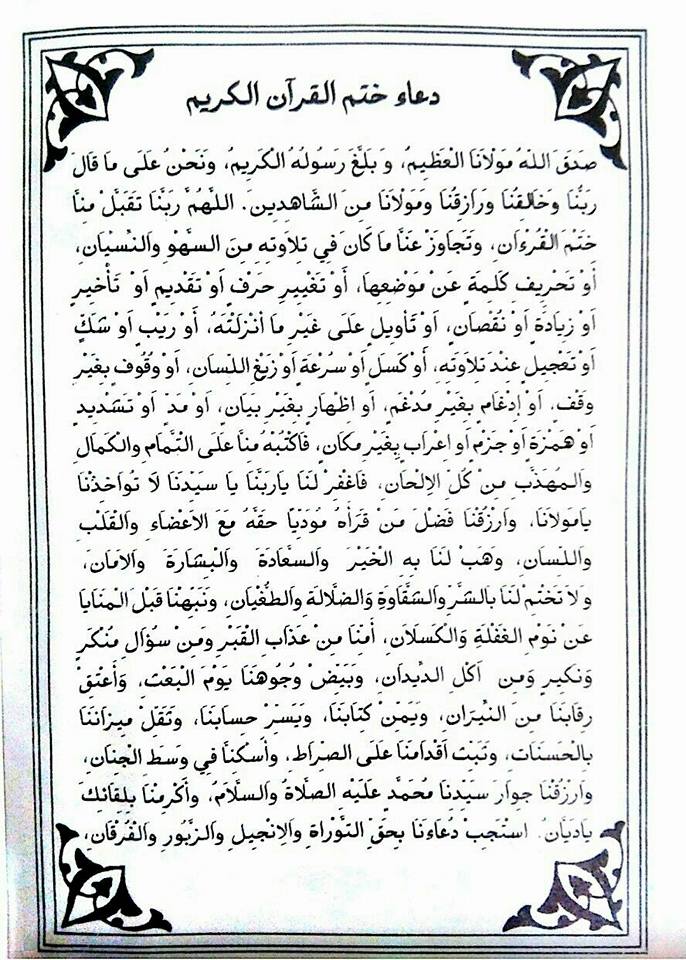 دعاء ختم القرآن الكريم
صَدَقَ اللهُ مَوْلَانَا الْعَظِيمُ، وَبَلَّغَ رَسُولُهُ الْكَرِيمُ، وَنَحْنُ عَلَى مَا قَالَ
رَبُّنَا وَخَالِقُنَا وَرَازِقُنَا وَمَوْلَانَا مِنَ الشَّاهِدِينَ. اللَّهُمَّ رَبَّنَا تَقَبَّلْ مِنَّا
خَتْمَ الْقُرْءَانِ، وَتَجَاوَزْ عَنَّا مَا كَانَ فِي تِلَاوَتِهِ مِنَ السَّهْوِ وَالنِّسْيَانِ،
أَوْ تَحْرِيفِ كَلِمَةٍ عَنْ مَوْضِعِهَا، أَوْ تَغْيِيرِ حَرْفٍ أَوْ تَقْدِيمٍ أَوْ تَأْخِيرٍ
أَوْ زِيَادَةٍ أَوْ نُقْصَانٍ، أَوْ تَأْوِيلٍ عَلَى غَيْرِ مَا أَنْزَلْتَهُ، أَوْ رَيْبٍ أَوْ شَكٍّ
أَوْ تَعْجِيلٍ عِنْدَ تِلَاوَتِهِ، أَوْ كَسَلٍ أَوْ سُرْعَةٍ أَوْ زَيْغِ اللِّسَانِ، أَوْ وُقُوفٍ بِغَيْرِ
وَقْفٍ، أَوْ إِدْغَامٍ بِغَيْرِ مُدْغَمٍ، أَوِ اظْهَارٍ بِغَيْرِ بَيَانٍ، أَوْ مَدٍّ أَوْ تَشْدِيدٍ
أَوْ هَمْزَةٍ أَوْ جَزْمٍ أَوِ اعْرَابٍ بِغَيْرِ مَكَانٍ، فَاكْتُبْهُ مِنَّا عَلَى التَّمَامِ وَالْكَمَالِ
وَالْمُهَذَّبِ مِنْ كُلِّ الِالْحَانِ، فَاغْفِرْ لَنَا يَارَبَّنَا يَا سَيِّدَنَا لَا تُوَاخِذْنَا
يَامَوْلَانَا، وَارْزُقْنَا فَضْلَ مَنْ قَرَأَهُ مُوَدِّيًا حَقَّهُ مَعَ الَاعْضَاءِ وَالْقَلْبِ
وَاللِّسَانِ، وَهَبْ لَنَا بِهِ الْخَيْرَ وَالسَّعَادَةَ وَالْبِشَارَةَ وَالَامَانَ،
وَلَا تَخْتِمْ لَنَا بِالشَّرِّ وَالشَّقَاوَةِ وَالضَّلَالَةِ وَالطُّغْيَانِ، وَنَبِّهْنَا قَبْلَ الْمَنَايَا
عَنْ نَوْمِ الْغَفْلَةِ وَالْكَسَلَانِ، أَمِّنَّا مِنْ عَذَابِ الْقَبْرِ وَمِنْ سُؤَالِ مُنْكَرٍ
وَنَكِيرٍ وَمِنِ اَكْلِ الدِّيدَانِ، وَبَيِّضْ وُجُوهَنَا يَوْمَ الْبَعْثِ، وَأَعْتِقْ
رِقَابَنَا مِنَ النِّيرَانِ، وَيَمِّنْ كِتَابَنَا، وَيَسِّرْ حِسَابَنَا، وَثَقِّلْ مِيزَانَنَا
بِالْحَسَنَاتِ، وَثَبِّتْ أَقْدَامَنَا عَلَى الصِّرَاطِ، وَأَسْكِنَّا فِي وَسَطِ الْجِنَانِ،
وَارْزُقْنَا جِوَارَ سَيِّدِنَا مُحَمَّدٍ عَلَيْهِ الصَّلَاةُ وَالسَّلَامُ، وَأَكْرِمْنَا بِلِقَائِكَ
يَادَيَّانُ. اسْتَجِبْ دُعَاءَنَا بِحَقِّ التَّوْرَاةِ وَالِانْجِيلِ وَالزَّبُورِ وَالْفُرْقَانِ،